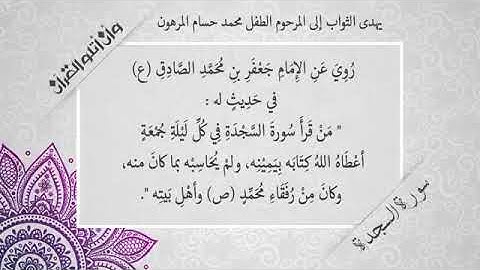 يهدى الثواب إلى المرحوم الطفل محمد حسام المرهون
وأن أتلو القرآن
رُوِيَ عَنِ الإِمَامِ جَعْفَرِ بنِ مُحَمَّدٍ الصَّادِقِ (ع)
في حَدِيثٍ له :
" مَنْ قَرَأَ سُورةَ السَّجْدَةِ فِي كُلِّ لَيْلَةِ جُمْعَةٍ
أعْطَاهُ اللهُ كِتَابَه بِيَمِيْنِه، ولمْ يُحَاسِبْه بما كانَ منه،
وكانَ مِنْ رُفَقَاءِ مُحَمَّدٍ (ص) وأهْلِ بَيتِه ".
سورة السجدة